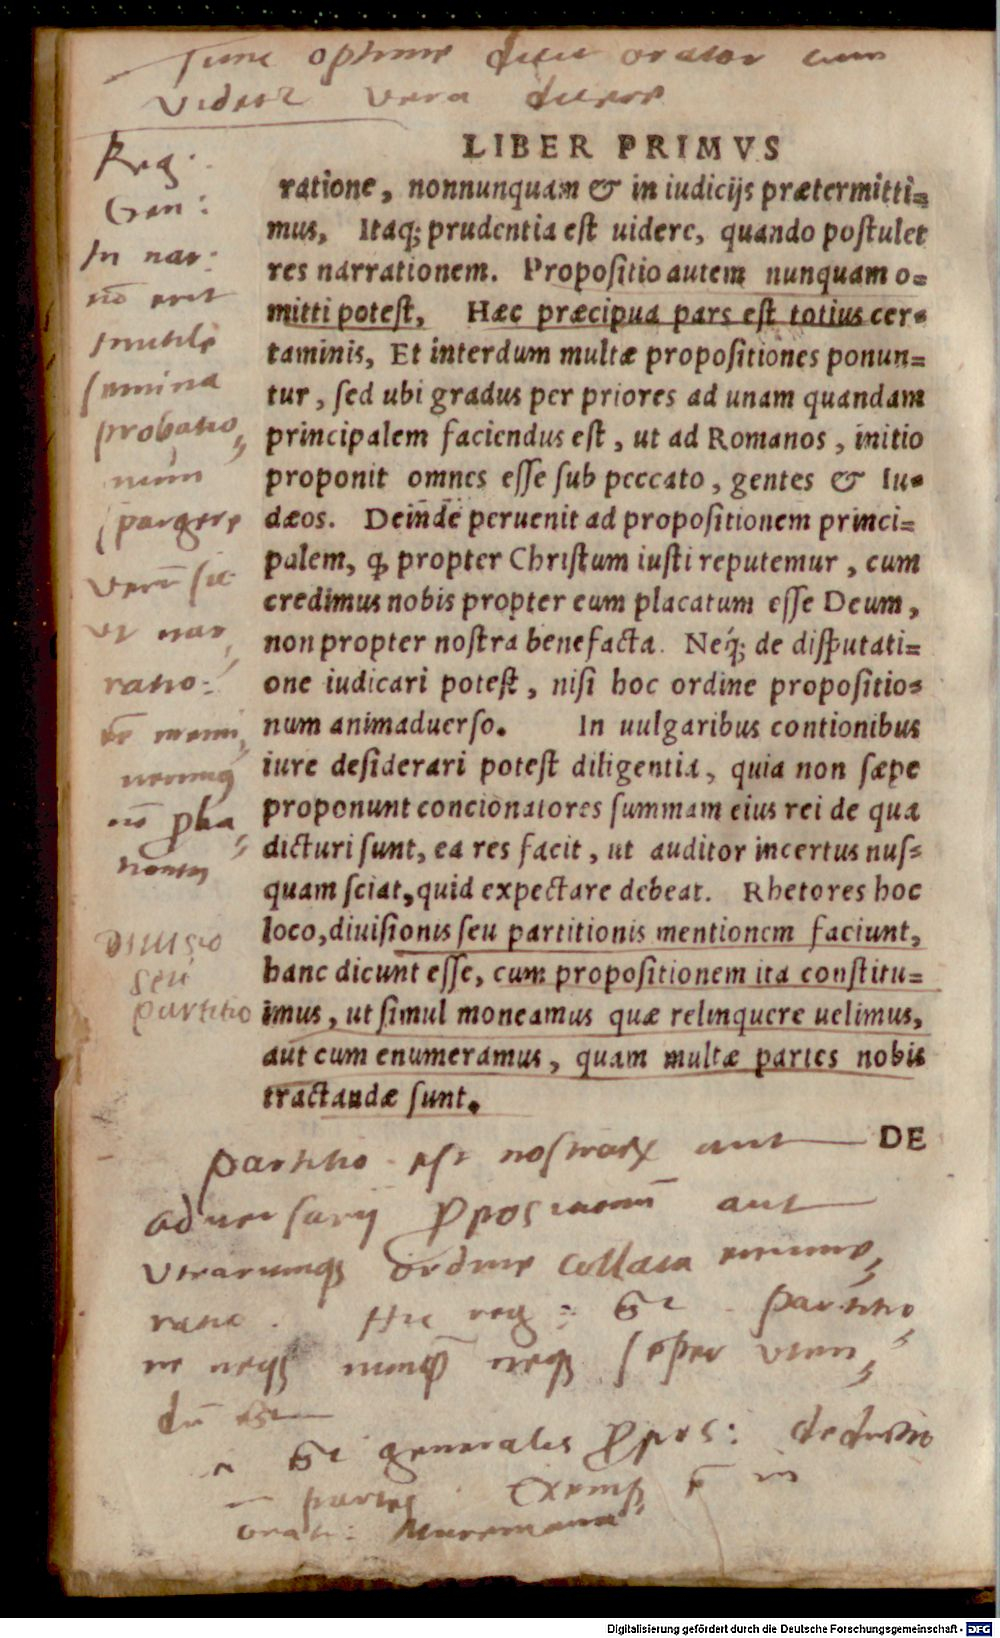 Tunc optime dicit orator cum
videtur vera dicere
LIBER PRIMVS
Reg:
Gen:
In nar:
nō erit
inutile
semina
probatio,
num
spargere
verū sic
ut nar,
ratio:
nō pba
Diuisio
seu
partitio
ratione, nonnunquam & in iudicijs prætermitti=
mus, Itaq; prudentia est uidere, quando postulet
res narrationem. Propositio autem nunquam o=
mitti potest, Hæc præcipua pars est totius cer=
taminis, Et interdum multæ propositiones ponun=
tur, sed ubi gradus per priores ad unam quandam
principalem faciendus est, ut ad Romanos, initio
proponit omnes esse sub peccato, gentes & Iu=
dæos. Deinde peruenit ad propositionem princi=
palem, ꝙ propter Christum iusti reputemur, cum
credimus nobis propter eum placatum esse Deum,
non propter nostra benefacta. Neq́; de disputati=
one iudicari potest, nisi hoc ordine propositio=
num animaduerso. In uulgaribus contionibus
iure desiderari potest diligentia, quia non sæpe
proponunt concionatores summam eius rei de qua
dicturi sunt, ea res facit, ut auditor incertus nus=
quam sciat, quid expectare debeat. Rhetores hoc
loco, diuisionis seu partitionis mentionem faciunt,
hanc dicunt esse, cum propositionem ita constitu=
imus, ut simul moneamus quæ relinquere uelimus,
aut cum enumeramus, quam multæ partes nobis
tractandæ sunt.
DE
partitio est nostrarꝝ aut
adversarij ꝓpositionū aut
utrarumqꝫ ordine collata enume,
ratio. Hic reg: partitio,
ne neqꝫ nunqꝫ neqꝫ semper uten,
dū est
generales ꝓpos: deductio
in partes. Exemp ē in
orat: Mureniana
Digitalisierung gefördert durch die Deutsche Forschungsgemeinschaft - DFG